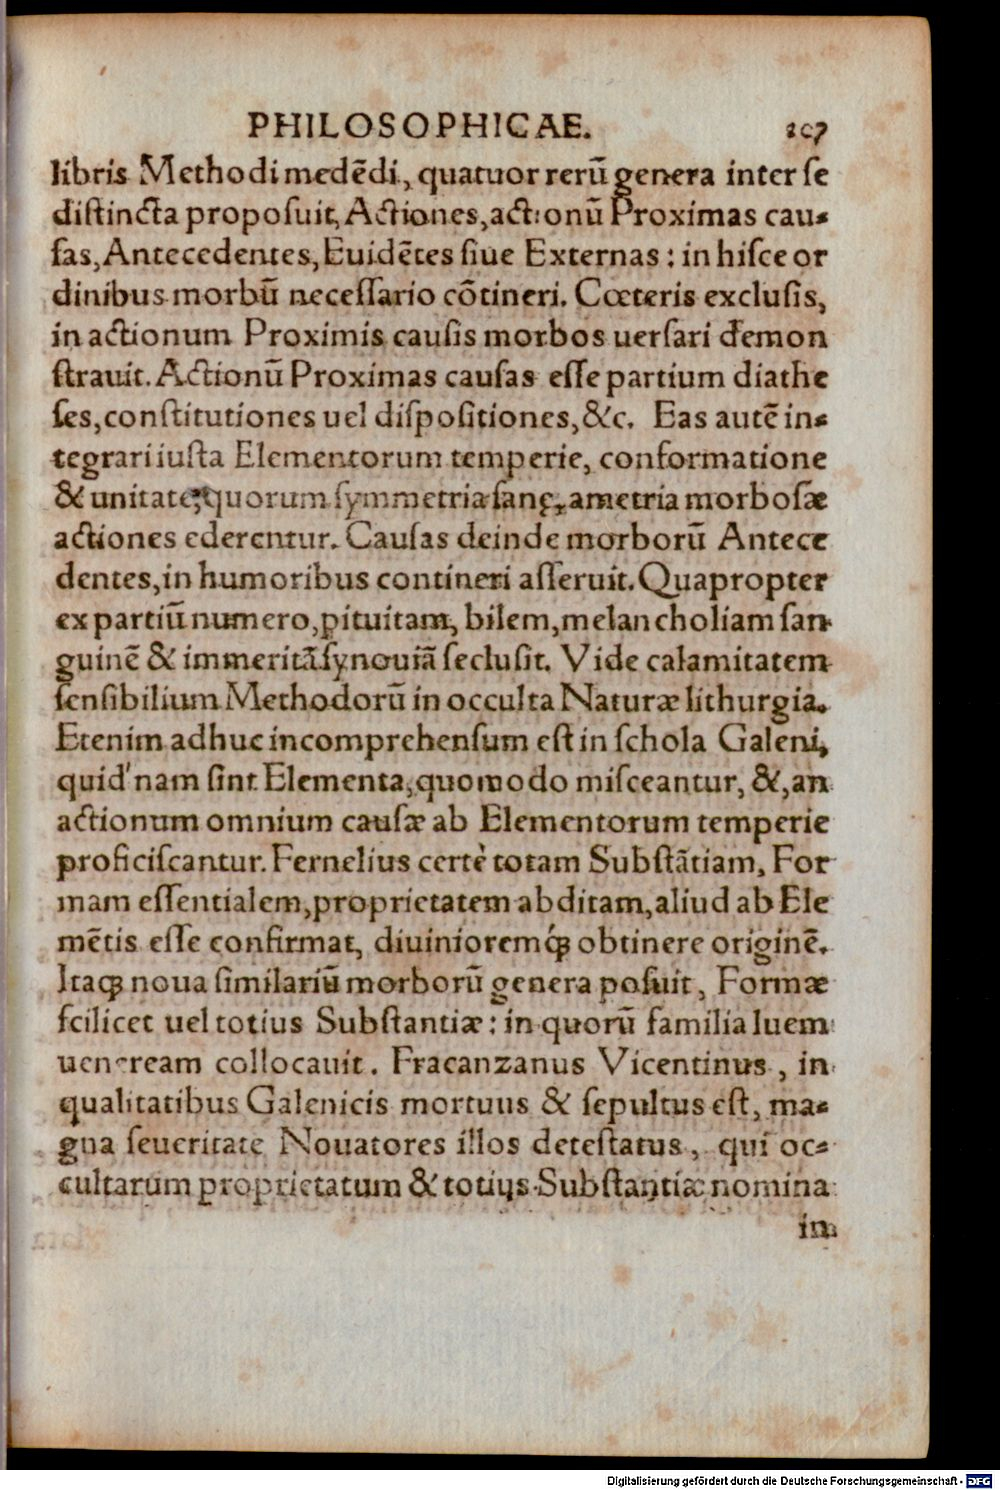 PHILOSOPHICAE. 207
libris Methodi medēdi, quatuor rerū genera inter se
distincta proposuit, Actiones, actionū Proximas cau-
sas, Antecedentes, Euidētes siue Externas: in hisce or
dinibus morbū necessario cōtineri. Cœteris exclusis,
in actionum Proximis causis morbos uersari demon
stravit. Actionū Proximas causas esse partium diathe
ses, constitutiones uel dispositiones, &c. Eas autē in-
tegrari iusta Elementorum temperie, conformatione
& unitate, quorum symmetria sanę, ametria morbosæ
actiones ederentur. Causas deinde morborū Antece
dentes, in humoribus contineri asseruit. Quapropter
ex partiū numero, pituitam, bilem, melancholiam san
guinē & immeritā synouiā seclusit. Vide calamitatem
sensibilium Methodorū in occulta Naturæ lithurgia.
Etenim adhuc incomprehensum est in schola Galeni,
quid'nam sint Elementa, quomodo misceantur, &, an
actionum omnium causæ ab Elementorum temperie
proficiscantur. Fernelius certè totam Substātiam, For
mam essentialem, proprietatem abditam, aliud ab Ele
mētis esse confirmat, diuinioremq́ꝫ obtinere originē.
Itaqꝫ noua similariū morborū genera posuit, Formæ
scilicet uel totius Substantiæ: in quorū familia luem
ueneream collocauit. Fracanzanus Vicentinus, in
qualitatibus Galenicis mortuus & sepultus est, ma-
gna seueritate Nouatores illos detestatus, qui oc-
cultarum proprietatum & totius Substantiæ nomina
in
Digitalisierung gefördert durch die Deutsche Forschungsgemeinschaft - DFG